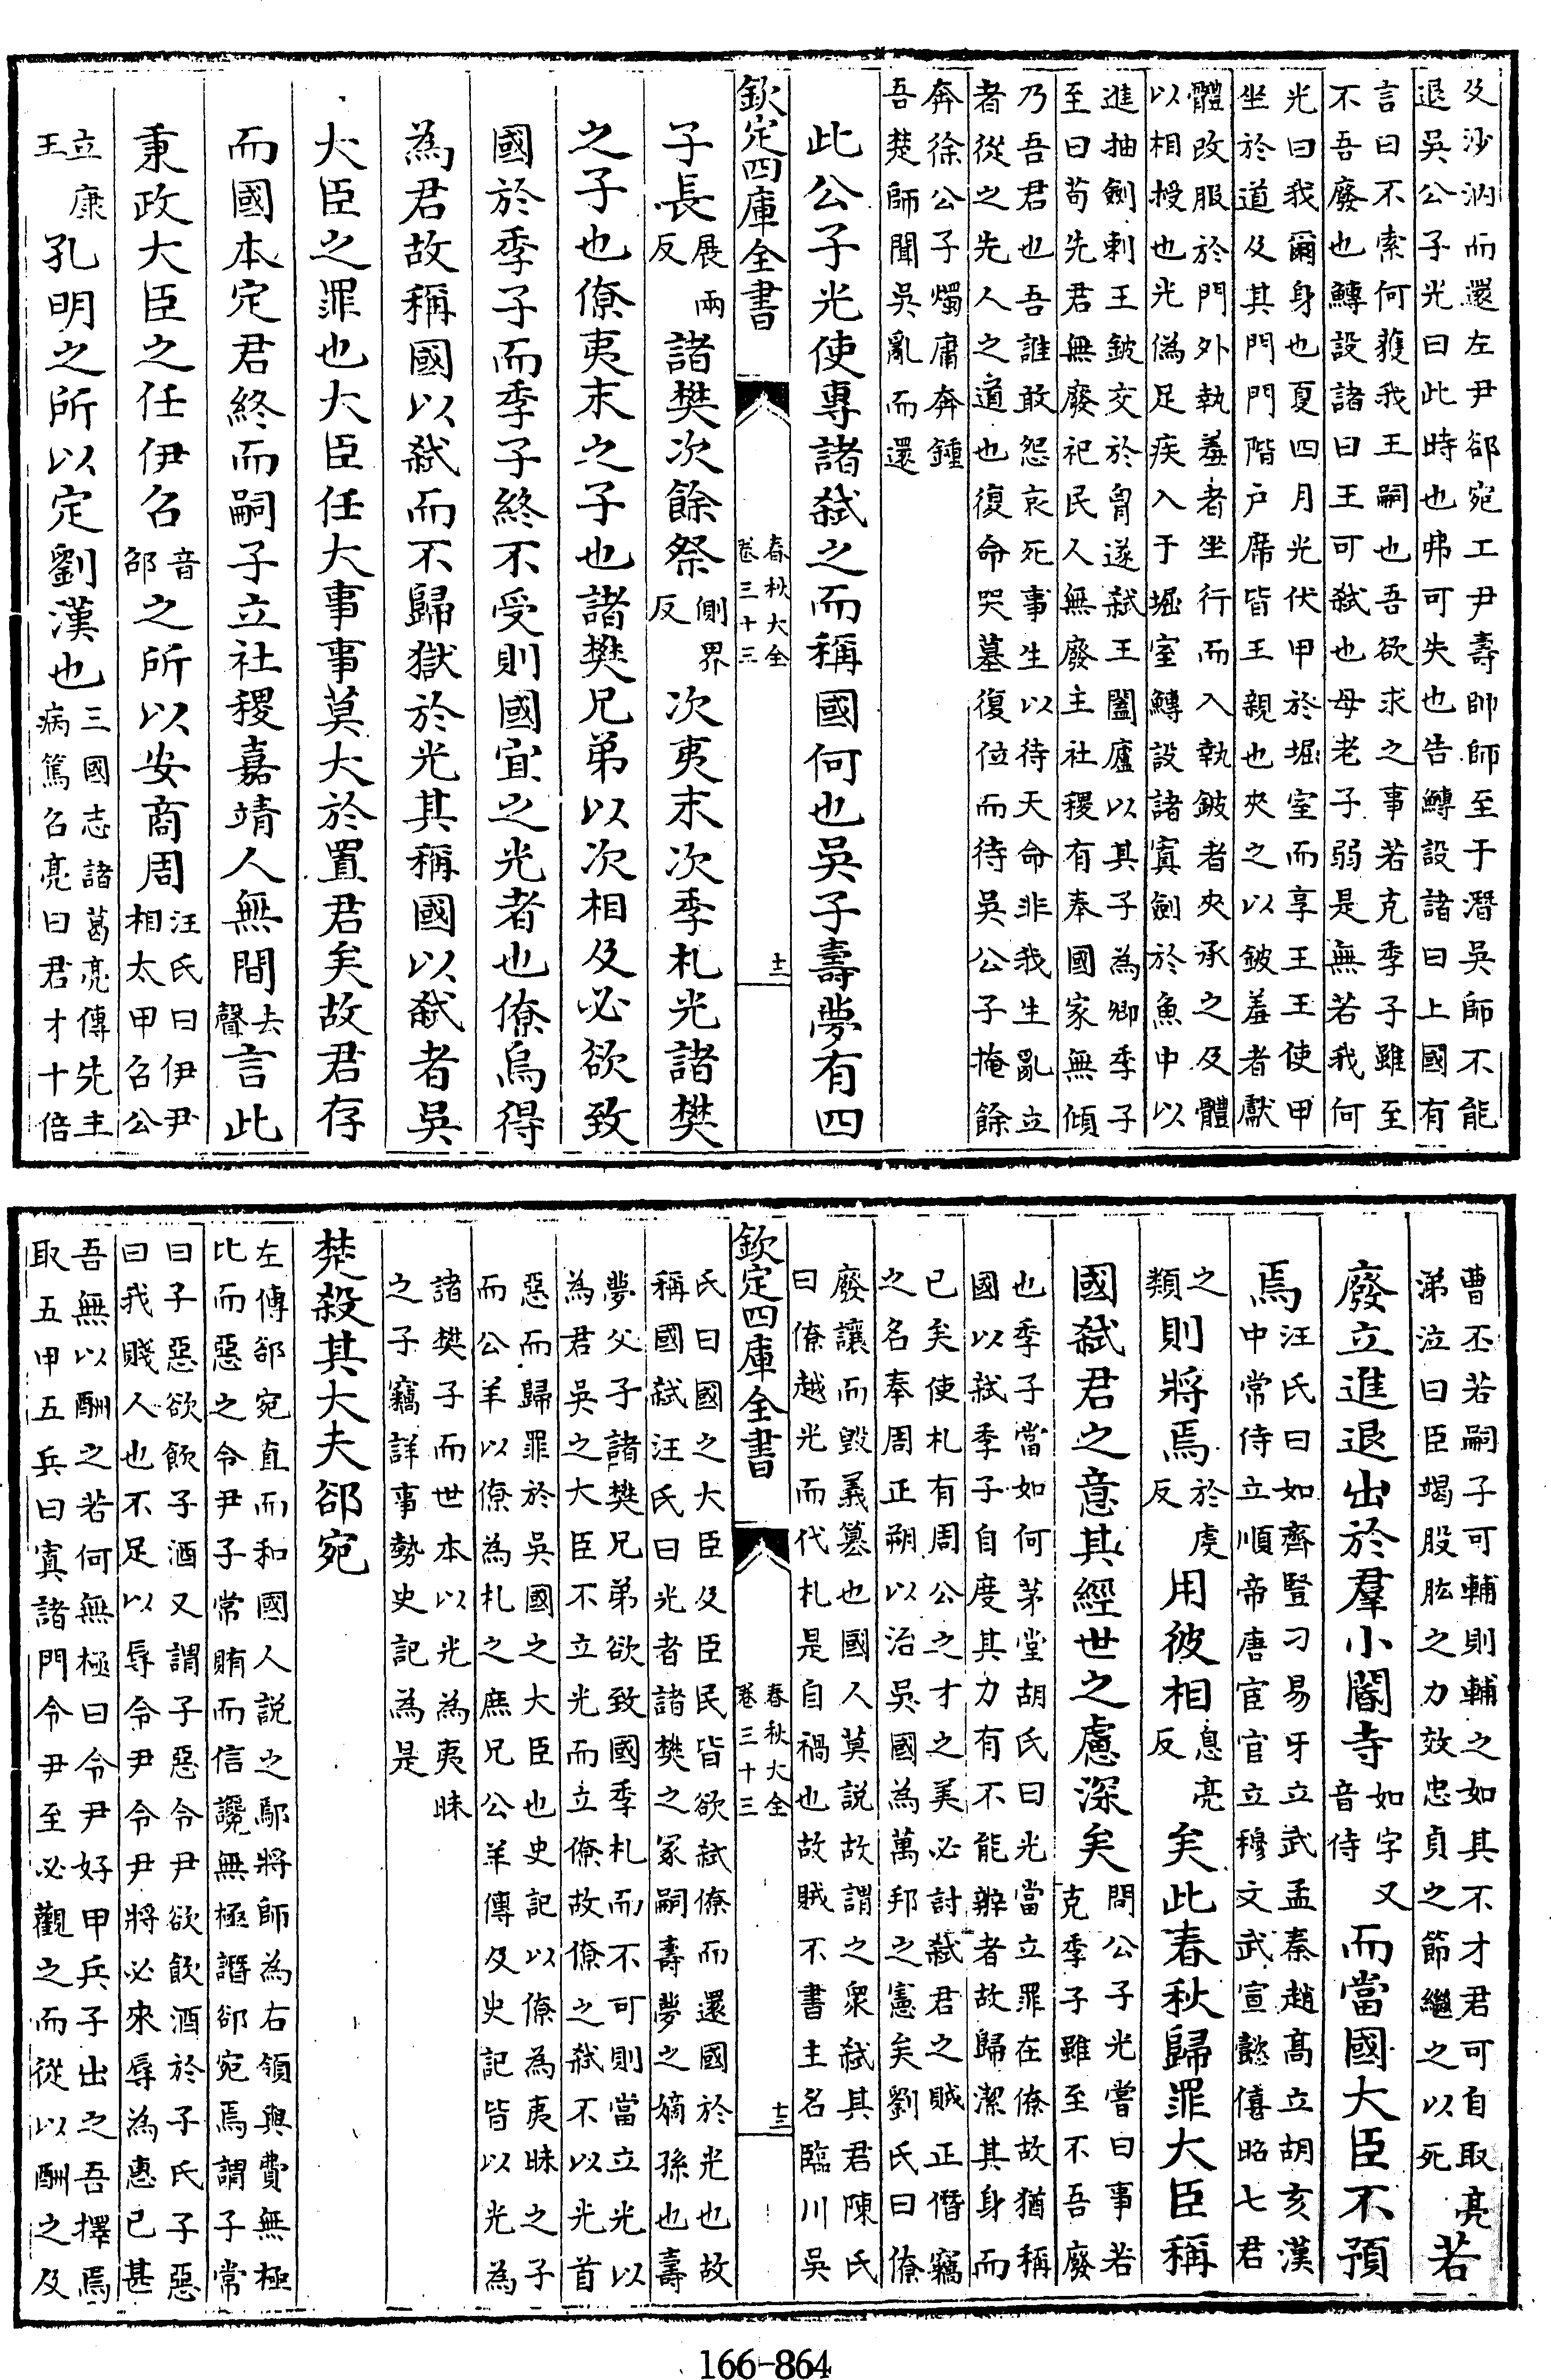 及沙汭而還左尹郤宛工尹壽帥師至于潛吳師不能
退吳公子光曰此時也弗可失也告鱄設諸曰上國有
言曰不索何獲我王嗣也吾欲求之事若克季子雖至
不吾廢也鱄設諸曰王可弑也母老子弱是無若我何
光曰我爾身也夏四月光伏甲於堀室而享王王使甲
坐於道及其門門階户席皆王親也夾之以鈹羞者獻
體改服於門外執羞者坐行而入執鈹者夾承之及體
以相授也光偽足疾入于堀室鱄設諸寘劍於魚中以
進抽劍刺王鈹交於胷遂弑王闔廬以其子為卿季子
至曰苟先君無廢祀民人無廢主社稷有奉國家無傾
乃吾君也吾誰敢怨哀死事生以待天命非我生亂立
者從之先人之道也復命哭墓復位而待吳公子掩餘
奔徐公子燭庸奔鍾
吾楚師聞吳亂而還
此公子光使專諸弑之而稱國何也吳子壽夢有四
欽定四庫全書
春秋大全
卷三十三
十二
子長展兩反諸樊次餘祭側界反次夷末次季札光諸樊
之子也僚夷末之子也諸樊兄弟以次相及必欲致
國於季子而季子終不受則國宜之光者也僚烏得
為君故稱國以弑而不歸獄於光其稱國以弑者吳
大臣之罪也大臣任大事事莫大於置君矣故君存
而國本定君終而嗣子立社稷嘉靖人無間去聲言此
秉政大臣之任伊召音邵之所以安商周汪氏曰伊尹相太甲召公
立康王孔明之所以定劉漢也三國志諸葛亮傳先主病篤召亮曰君才十倍
曹丕若嗣子可輔則輔之如其不才君可自取亮
涕泣曰臣竭股肱之力效忠貞之節繼之以死若
廢立進退出於羣小閽寺如字又音侍而當國大臣不預
焉汪氏曰如齊豎刁易牙立武孟秦趙髙立胡亥漢中常侍立順帝唐宦官立穆文武宣懿僖昭七君
之類則將焉於虔反用彼相息亮反矣此春秋歸罪大臣稱
國弑君之意其經世之慮深矣問公子光嘗曰事若克季子雖至不吾廢
也季子當如何茅堂胡氏曰光當立罪在僚故猶稱
國以弑季子自度其力有不能辦者故歸潔其身而
已矣使札有周公之才之美必討弑君之賊正僭竊
之名奉周正朔以治吳國為萬邦之憲矣劉氏曰僚
廢讓而毀義簒也國人莫説故謂之衆弑其君陳氏
曰僚越光而代札是自禍也故賊不書主名臨川吳
欽定四庫全書
春秋大全
卷三十三
十三
氏曰國之大臣及臣民皆欲弑僚而還國於光也故
稱國弑汪氏曰光者諸樊之冢嗣壽夢之嫡孫也壽
夢父子諸樊兄弟欲致國季札而不可則當立光以
為君吳之大臣不立光而立僚故僚之弑不以光首
惡而歸罪於吳國之大臣也史記以僚為夷昧之子
而公羊以僚為札之庶兄公羊傳及史記皆以光為
諸樊子而世本以光為夷昧
之子竊詳事勢史記為是
楚殺其大夫郤宛
左傳郤宛直而和國人説之鄢將師為右領與費無極
比而惡之令尹子常賄而信讒無極譖郤宛焉謂子常
曰子惡欲飲子酒又謂子惡令尹欲飲酒於子氏子惡
曰我賤人也不足以辱令尹令尹將必來辱為惠已甚
吾無以酬之若何無極曰令尹好甲兵子出之吾擇焉
取五甲五兵曰寘諸門令尹至必觀之而從以酬之及
166-864